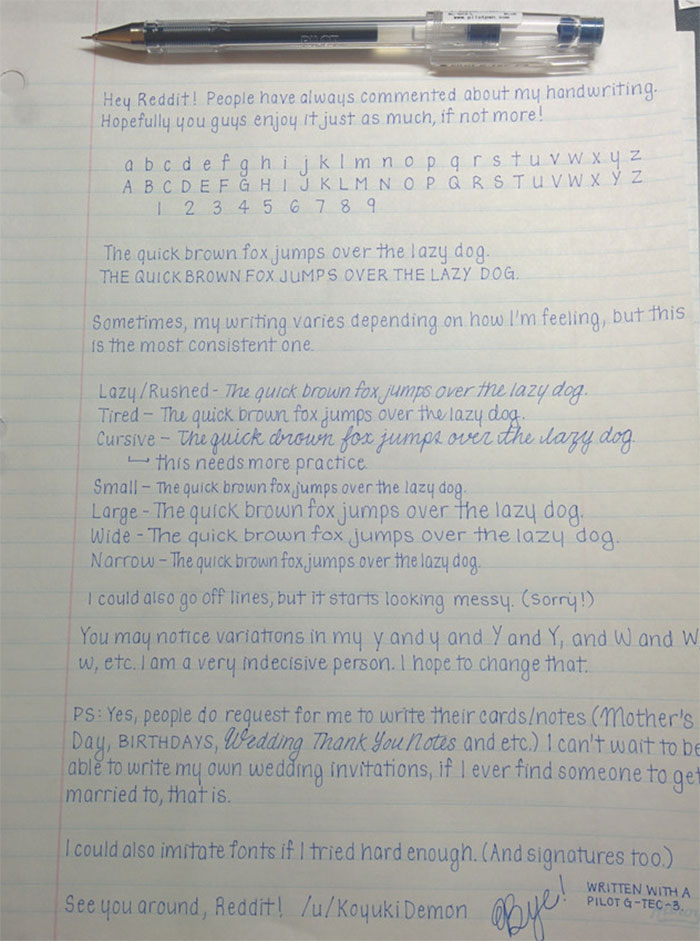 www.pilotpen.com
PILOT
Hey Reddit! People have always commented about my handwriting.
Hopefully you guys enjoy it just as much, if not more!
a b c d e f g h i j k l m n o p q r s t u v w x y z
A B C D E F G H I J K L M N O P Q R S T U V W X Y Z
1 2 3 4 5 6 7 8 9
The quick brown fox jumps over the lazy dog.
THE QUICK BROWN FOX JUMPS OVER THE LAZY DOG.
Sometimes, my writing varies depending on how I'm feeling, but this
is the most consistent one.
Lazy/Rushed - The quick brown fox jumps over the lazy dog.
Tired - The quick brown fox jumps over the lazy dog.
Cursive - The quick brown fox jumps over the lazy dog
this needs more practice
Small - The quick brown fox jumps over the lazy dog.
Large - The quick brown fox jumps over the lazy dog.
Wide - The quick brown fox jumps over the lazy dog.
Narrow - The quick brown fox jumps over the lazy dog.
I could also go off lines, but it starts looking messy. (Sorry!)
You may notice variations in my y and y and Y and Y, and W and W
w, etc. I am a very indecisive person. I hope to change that.
PS: Yes, people do request for me to write their cards/notes (Mother's
Day, BIRTHDAYS, Wedding Thank You Notes and etc.) I can't wait to be
able to write my own wedding invitations, if I ever find someone to get
married to, that is.
I could also imitate fonts if I tried hard enough. (And signatures too.)
See you around, Reddit! /u/KoyukiDemon Bye!
WRITTEN WITH A
PILOT G-TEC-3.